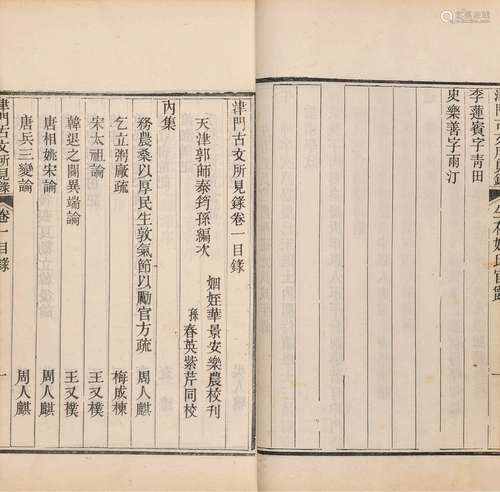 李蓮賓字青田
史樂善字雨汀
津門古文所見錄卷一目錄
天津郭師泰筠孫編次
姻姪華景安樂農校刊
孫春英紫芹同校
內集
務農桑以厚民生敦氣節以勵官方疏 周人麒
乞立粥廠疏 梅成棟
宋太祖論 王又樸
韓退之闢異端論 王又樸
唐相姚宋論 周人麒
唐兵三變論 周人麒
津門古文所見錄 卷一目錄 一